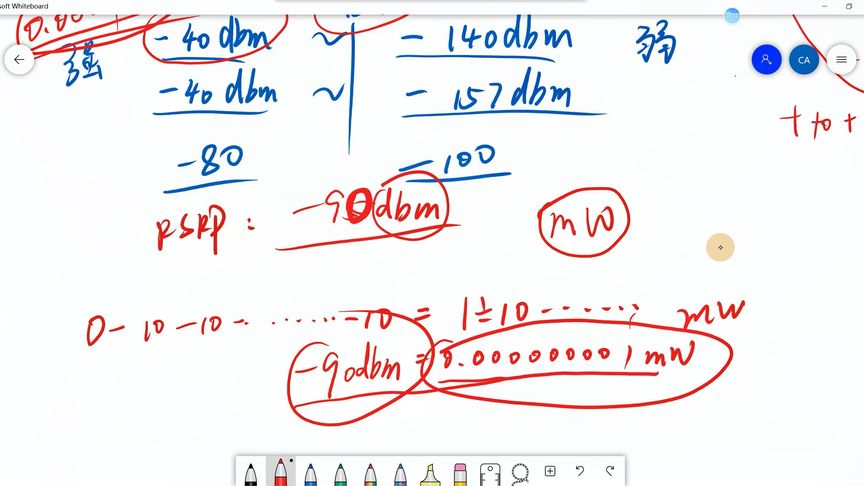 soft Whiteboard
0.00
-40dbm ~ -140dbm
强 弱
CA
-40dbm ~ -157dbm
-80 -100
RSRP: -90dbm mW
0-10-10-......-10 = 1÷10......; mW
-90dbm = 0.000000001mW